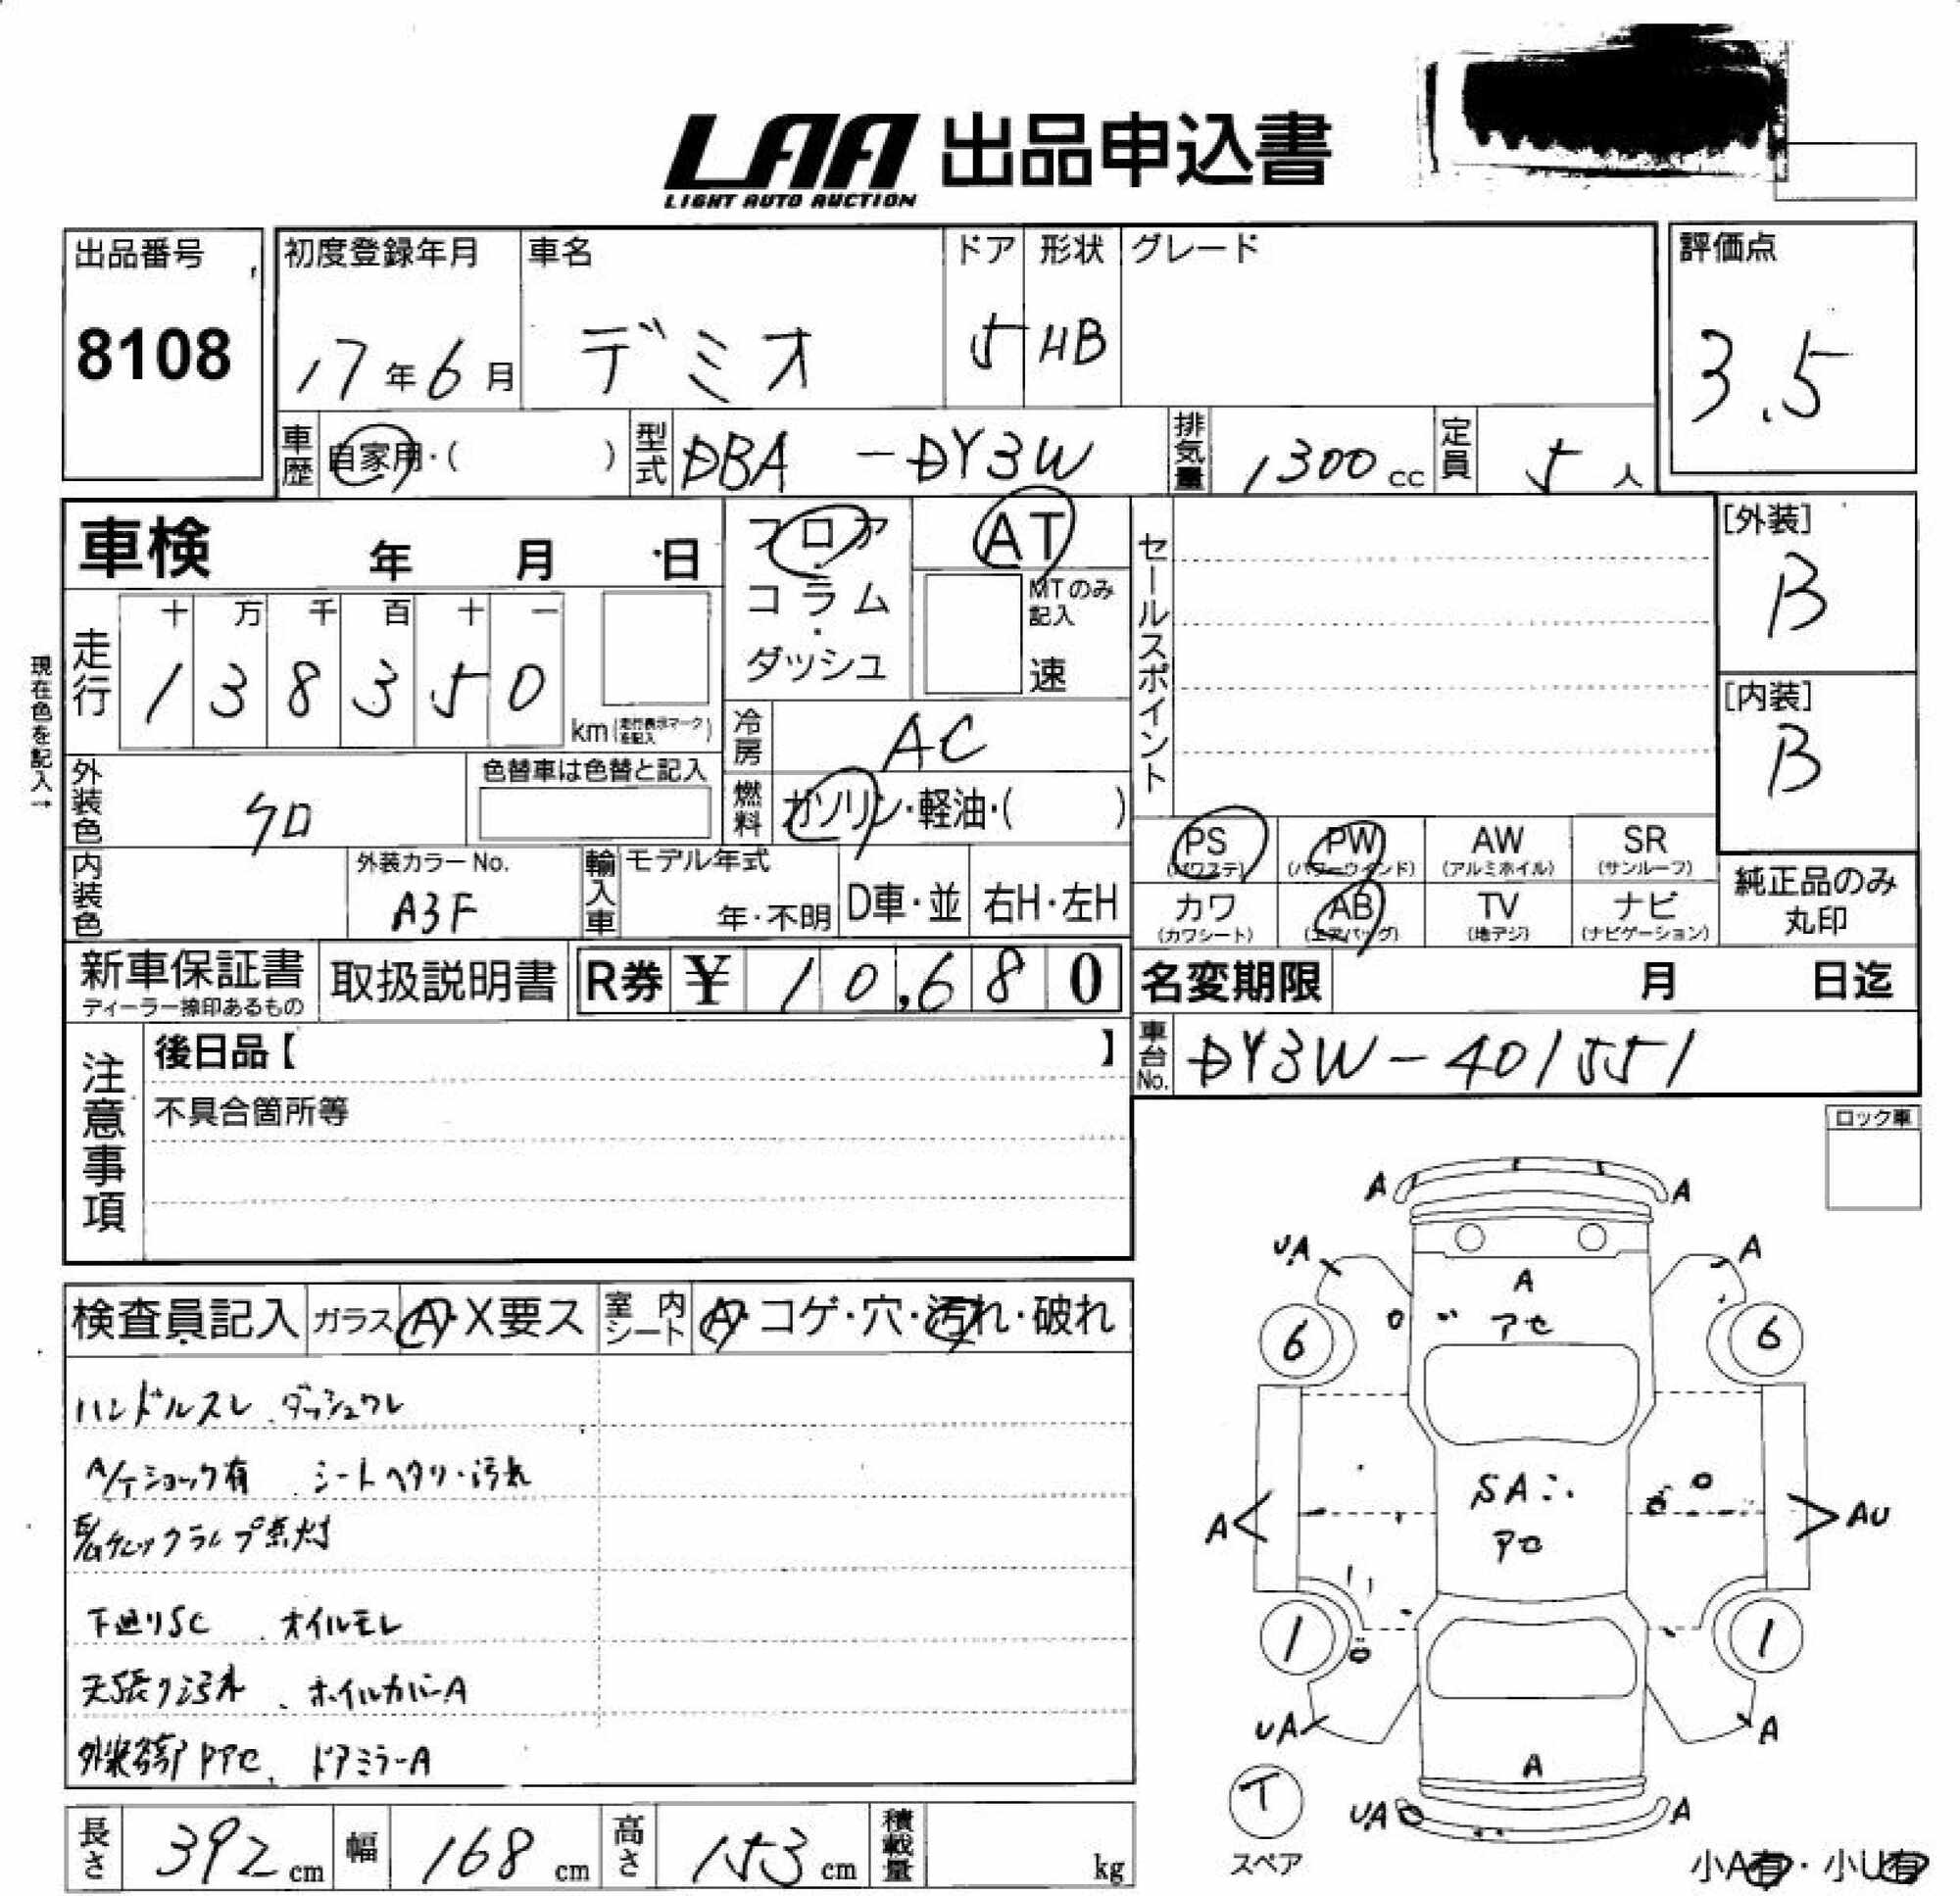 LAA 出品申込書
LIGHT AUTO AUCTION
出品番号
8108
初度登録年月
17年6月
車名
デミオ
ドア
5
形状
HB
グレード
評価点
3.5
車歴
自家用・( )
型式
DBA -DY3W
排気量
1300cc
定員
5人
車検 年 月 日
フロア・コラム・ダッシュ
AT
MTのみ記入
速
セールスポイント
[外装]
B
[内装]
B
現在色を記入→
走行
十 万 千 百 十 一
1 3 8 3 5 0
km(走行表示マークを記入)
冷房
AC
外装色
クロ
色替車は色替と記入
燃料
ガソリン・軽油・( )
内装色
外装カラーNo.
A3F
輸入車
モデル年式
年・不明
D車・並
右H・左H
PS
(パワステ)
PW
(パワーウインド)
AW
(アルミホイル)
SR
(サンルーフ)
カワ
(カワシート)
AB
(エアバッグ)
TV
(地デジ)
ナビ
(ナビゲーション)
純正品のみ
丸印
新車保証書
ディーラー捺印あるもの
取扱説明書
R券 ¥ 10,680
名変期限 月 日迄
注意事項
後日品【 】
不具合箇所等
車台No.
DY3W-401551
ロック車
検査員記入
ガラス
A・X要ス
室内シート
A・コゲ・穴・汚れ・破れ
ハンドルスレ、ダッシュワレ
A/Tショック有、シートヘタリ・汚れ
E/Gチェックランプ点灯
下廻りSC、オイルモレ
天張り汚れ、ホイルカバーA
外装各部Pアセ、ドアミラーA
A A
UA A
A
アセ
6 6
SA
アセ
A AU
1 1
UA A
A
UA A
T
スペア
小A有・小U有
長さ
392cm
幅
168cm
高さ
153cm
積載量
kg